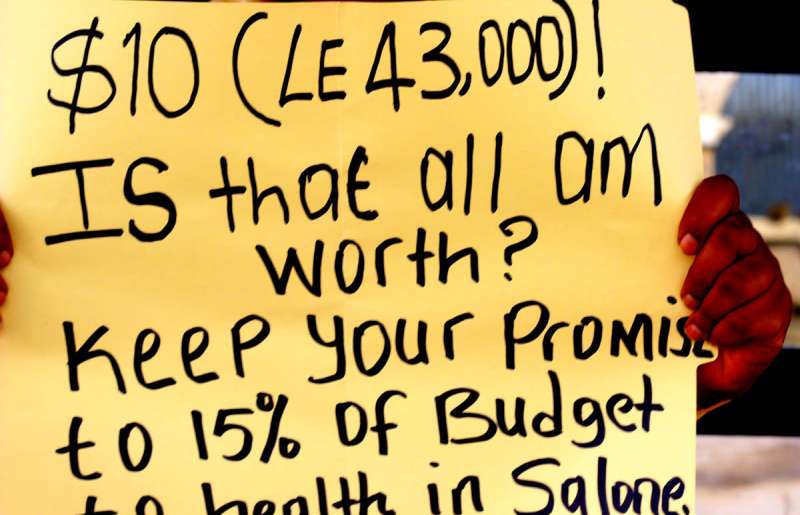 $10 (LE 43,000)!
IS that all am
worth?
Keep your Promise
to 15% of Budget
to health in Salone.